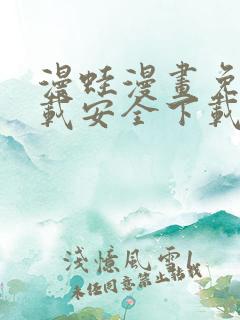 漫蛙漫畫免
載安全下載
淺憶風雲1
未经同意禁止转载